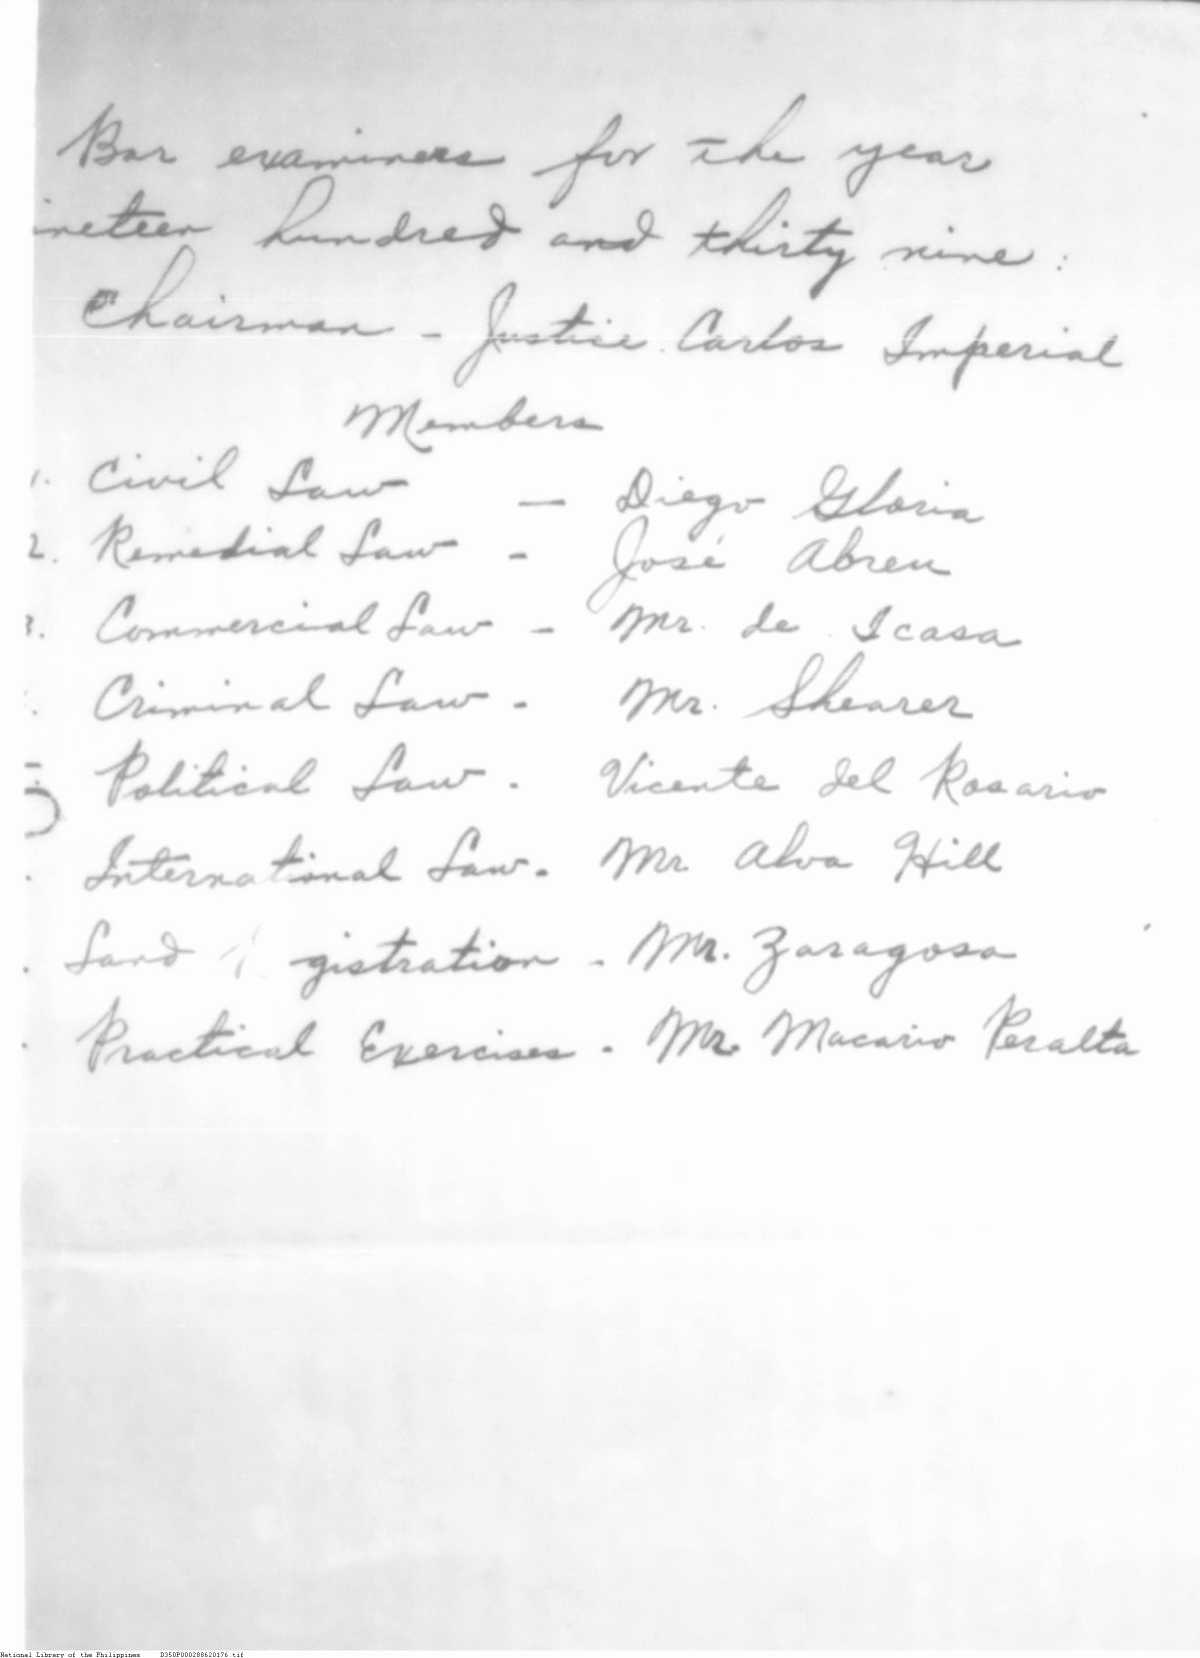 Bar examiners for the year
ineteen hundred and thirty nine:
Chairman - Justice Carlos Imperial
Members
1. Civil Law - Diego Gloria
2. Remedial Law - José Abreu
3. Commercial Law - Mr. de Icasa
. Criminal Law - Mr. Shearer
Political Law - Vicente del Rosario
. International Law - Mr. Alva Hill
. Land gistration - Mr. Zaragosa
. Practical Exercises - Mr. Macario Peralta
National Library of the Philippines D350P000288620176.tif